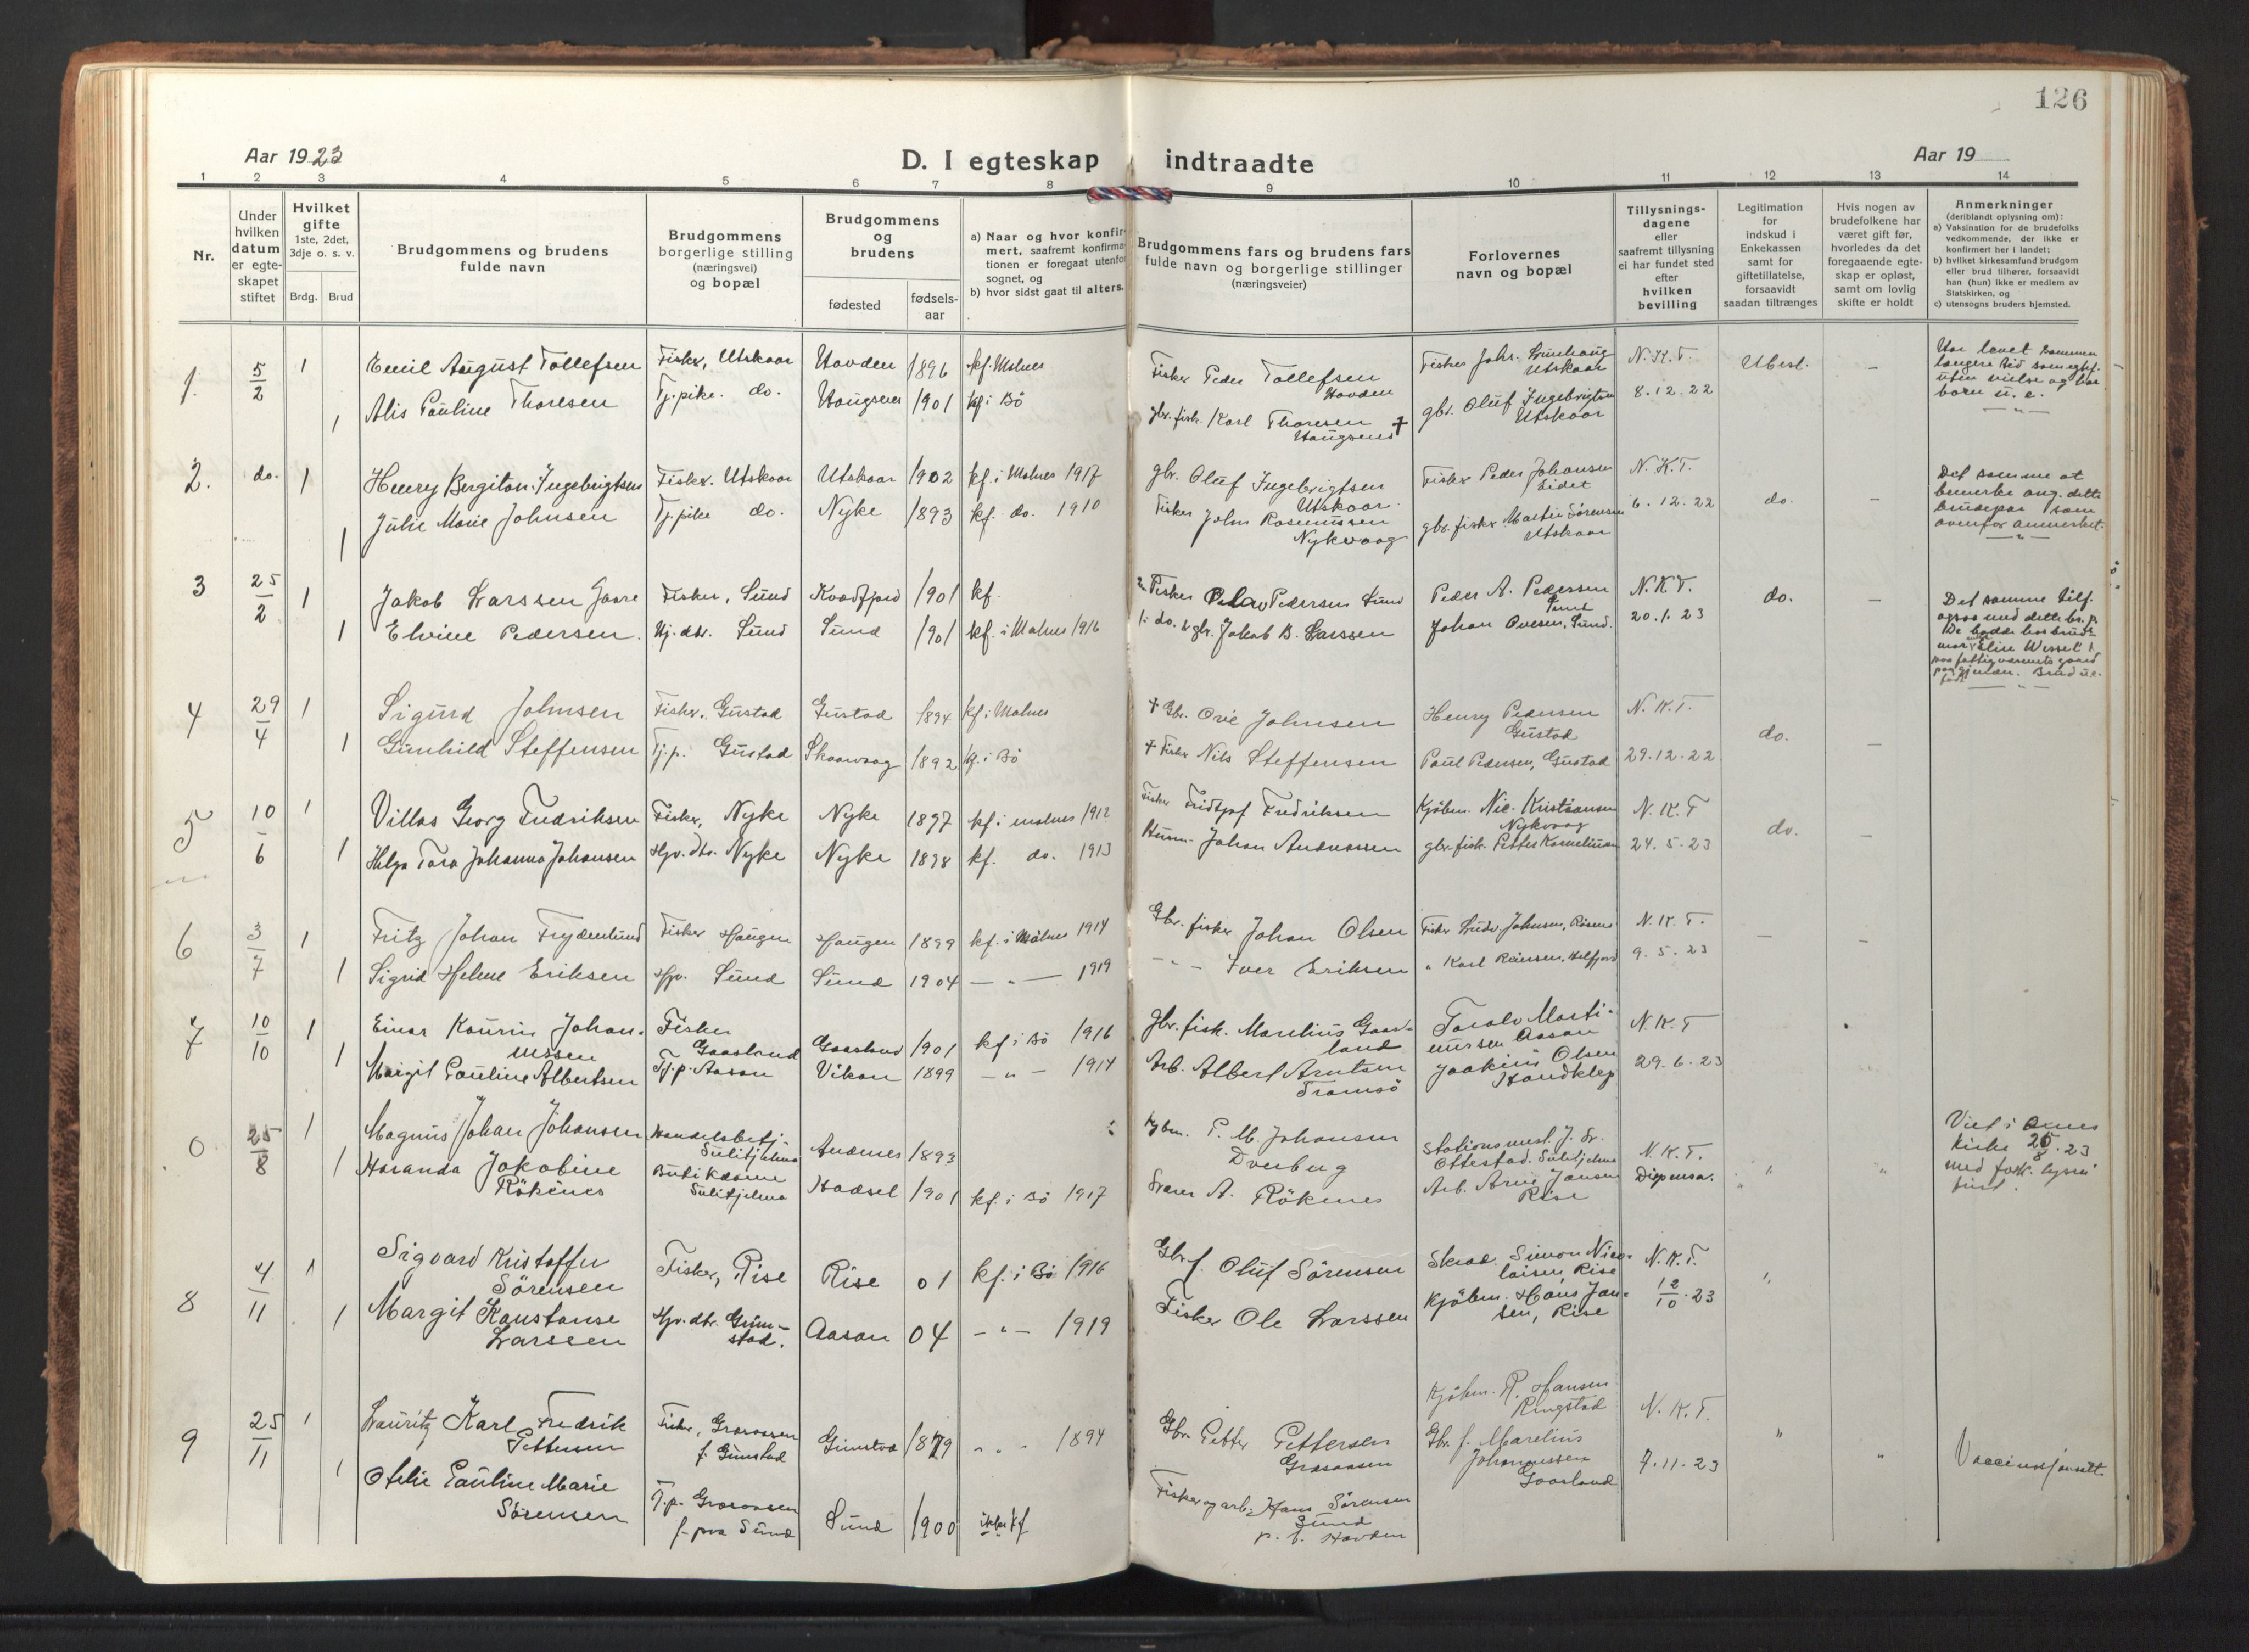 126
Aar 1923
D. I egteskap indtraadte
Aar 19
1 2 3 4 5 6 7 8 9 10 11 12 13 14
Nr.
Under
hvilken
datum
er egte-
skapet
stiftet
Hvilket
gifte
1ste, 2det,
3dje o. s. v.
Brdg. Brud
Brudgommens og brudens
fulde navn
Brudgommens
borgerlige stilling
(næringsvei)
og bopæl
Brudgommens
og
brudens
fødested
fødsels-
aar
a) Naar og hvor konfir-
mert, saafremt konfirma-
tionen er foregaat utenfor
sognet, og
b) hvor sidst gaat til alters.
Brudgommens fars og brudens fars
fulde navn og borgerlige stillinger
(næringsveier)
Forlovernes
navn og bopæl
Tillysnings-
dagene
eller
saafremt tillysning
ei har fundet sted
efter
hvilken
bevilling
Legitimation
for
indskud i
Enkekassen
samt for
giftetillatelse,
forsaavidt
saadan tiltrænges
Hvis nogen av
brudefolkene har
været gift før,
hvorledes da det
foregaaende egte-
skap er opløst,
samt om lovlig
skifte er holdt
Anmerkninger
(deriblandt oplysning om):
a) Vaksination for de brudefolks
vedkommende, der ikke er
konfirmert her i landet;
b) hvilket kirkesamfund brudgom
eller brud tilhører, forsaavidt
han (hun) ikke er medlem av
Statskirken, og
c) utensogns bruders hjemsted.
1. 5/2 1 Emil August Tollefsen Fisker, Utskaar Hovden 1896 kf. Malnes
1 Alis Pauline Thoresen Tj.pike. do. Haugsnes 1901 kf i Bö
Fisker Peder Tollefsen
Hovden
gbr. fisk. Karl Thoresen †
Haugsnes
Fisker Johs.
Utskaar
gbr. Oluf Ingebrigtsen
Utskaar
N.K.T.
8.12.22
Ubest. —
Har levet sammen
længere tid som egtef.
uten vielse og har
barn u. e.
2. do. 1 Henry Bergiton Ingebrigtsen Fisker. Utskaar Utskaar 1902 kf. i Malnes 1917
1 Julie Marie Johnsen Tj.pike do. Nyke 1893 kf. do. 1910
gbr. Oluf Ingebrigtsen
Utskaar.
Fisker John Rasmussen
Nykvaag
Fisker Peder Johansen
Eidet
gbr. fisker Martin Sörensen
Utskaar
N.K.T.
6.12.22
do. —
Det samme at
bemerke ang. dette
brudepar som
ovenfor anmerket.
3 25/2 1 Jakob Larssen Gaare Fisker, Sund Kvædfjord 1901 kf.
1 Elvine Pedersen. Hj. dtr. Sund Sund 1901 kf. i Malnes 1916
2. Fisker Pedersen Sund
1. do. & gbr. Jakob B. Larssen
Peder A. Pedersen
Sund
Johan Ovesen, Sund.
N.K.T.
20.1.23
do. —
Det samme tilf.
ogsaa med dette br.p.
De bodde hos brud
Elise Wessel
paa fattigvæsenets gaard
Brud u.e.
født
4 29/4 1 Sigurd Johnsen Fisker, Gustad Gustad 1894 kf. i Malnes
1 Gunhild Steffensen Tj.p. Gustad Skaarvaag 1892 kf. i Bö
† Gbr. Johnsen
† Fisker Nils Steffensen
Henry Pedersen
Gustad
Paul Pedersen, Gustad
N.K.T.
29.12.22
do. —
5 10/6 1 Villas Georg Fredriksen Fisker, Nyke Nyke 1897 kf i malnes 1912
1 Helga Tora Johanna Johansen Hjv. dtr. Nyke Nyke 1898 kf. do. 1913
Fisker Fridtjof Fredriksen
Johan Andreassen
Kjöbm. Nic. Kristiansen
Nykvaag
gbr. fisk. Petter Korneliussen
N.K.T
24.5.23
do. —
6 3/7 1 Fritz Johan Frydenlund Fisker Haugen Haugen 1899 kf. i Malnes 1914
1 Sigrid Helene Eriksen Hjv. Sund Sund 1904 — " — 1919
Gbr. fisker Johan Olsen
— " — Iver Eriksen
Fisker Ludv. Johnsen,
" Karl
N.K.T.
9.5.23
— —
7 10/10 1 Einar Kaurin Johan-
nessen Fisker
Gaasland Gaasland 1901 kf i Bö 1916
1 Margit Pauline Albertsen Tj.p. Aasan Vikan 1899 — " — 1914
gbr. fisk. Marelius Gaas-
land
Arb. Albert Arntsen
Tromsö
Toralv Marti-
nussen Aasan
Joakim Olsen
Haandklep
N.K.T
29.6.23
0 25/8 1 Magnus Johan Johansen Handelsbetj.
Sulitjelma Andenes 1893
1 Haranda Jakobine
Rökenes Butikdame
Sulitjelma Hadsel 1901 kf. i Bö 1917
Kjbm. P. M. Johansen
Dverberg
A. Rökenes
Stationsmest. J. Sr.
Ottestad. Sulitjelma
Arb. Arne Jansen
Rise
N.K.T.
Dispensa.
" "
Viet i
kirke 25/8.23
med lysn.
8 4/11 1 Sigvard Kristoffer
Sörensen Fisker, Rise Rise 01 kf. i Bö 1916
1 Margit Konstanse
Larssen Hjv. dtr. Grim-
stad. Aasan 04 — " — 1919
Gbr f. Oluf Sörensen
Fisker Ole Larssen
Skræd. Simon Nico-
laisen, Rise
Kjöbm. Hans Jan-
sen, Rise
N.K.T.
12/10.23
"
9 25/11 1 Lauritz Karl Fredrik
Pettersen Fisker, Graaaasen
f. Gimstad Gimstad 1879 " " " 1894
1 Otelie Pauline Marie
Sörensen T.p. Graaaasen
f. paa Sund Sund 1900 ikke kf
Gbr. Petter Pettersen
Graaaasen
Fisker og arb. Hans Sörensen
Sund
p. t. Hovden
Kjöbm. R. Hansen
Ringstad
Gbr. f. Marelius
Johannessen
Gaasland
N.K.T.
7.11.23
" "